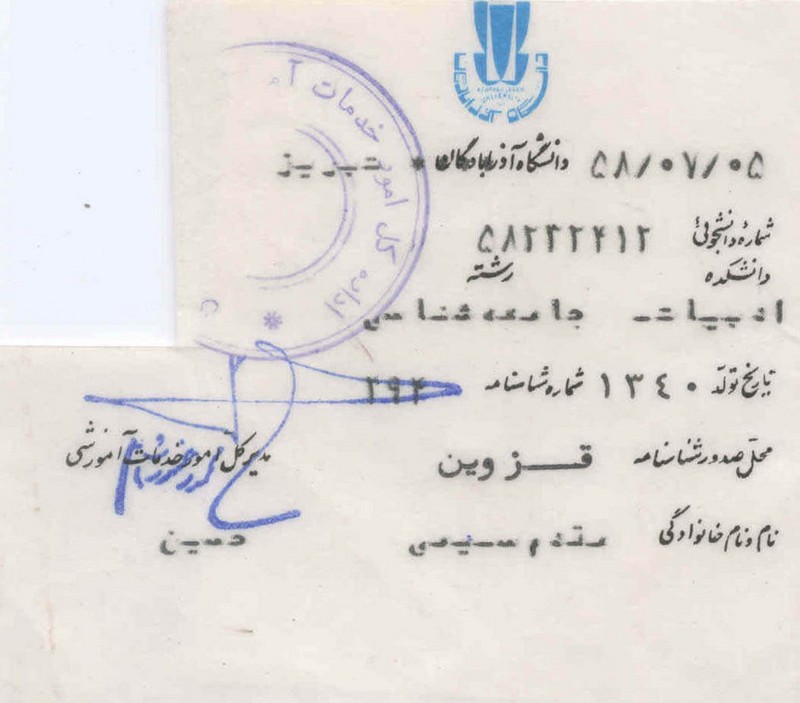 ۵۸/۰۷/۰۵ دانشگاه آذرابادگان * تبریز
شمارهٔ دانشجوئی ۵۸۲۳۲۴۱۲
دانشکده رشته
ادبیات جامعه شناسی
تاریخ تولد ۱۳۴۰ شماره شناسنامه ۲۹۴
محل صدور شناسنامه قزوین
مدیر کل امور خدمات آموزشی
نام و نام خانوادگی مقدم سلیمی حسین
اداره کل امور خدمات آ